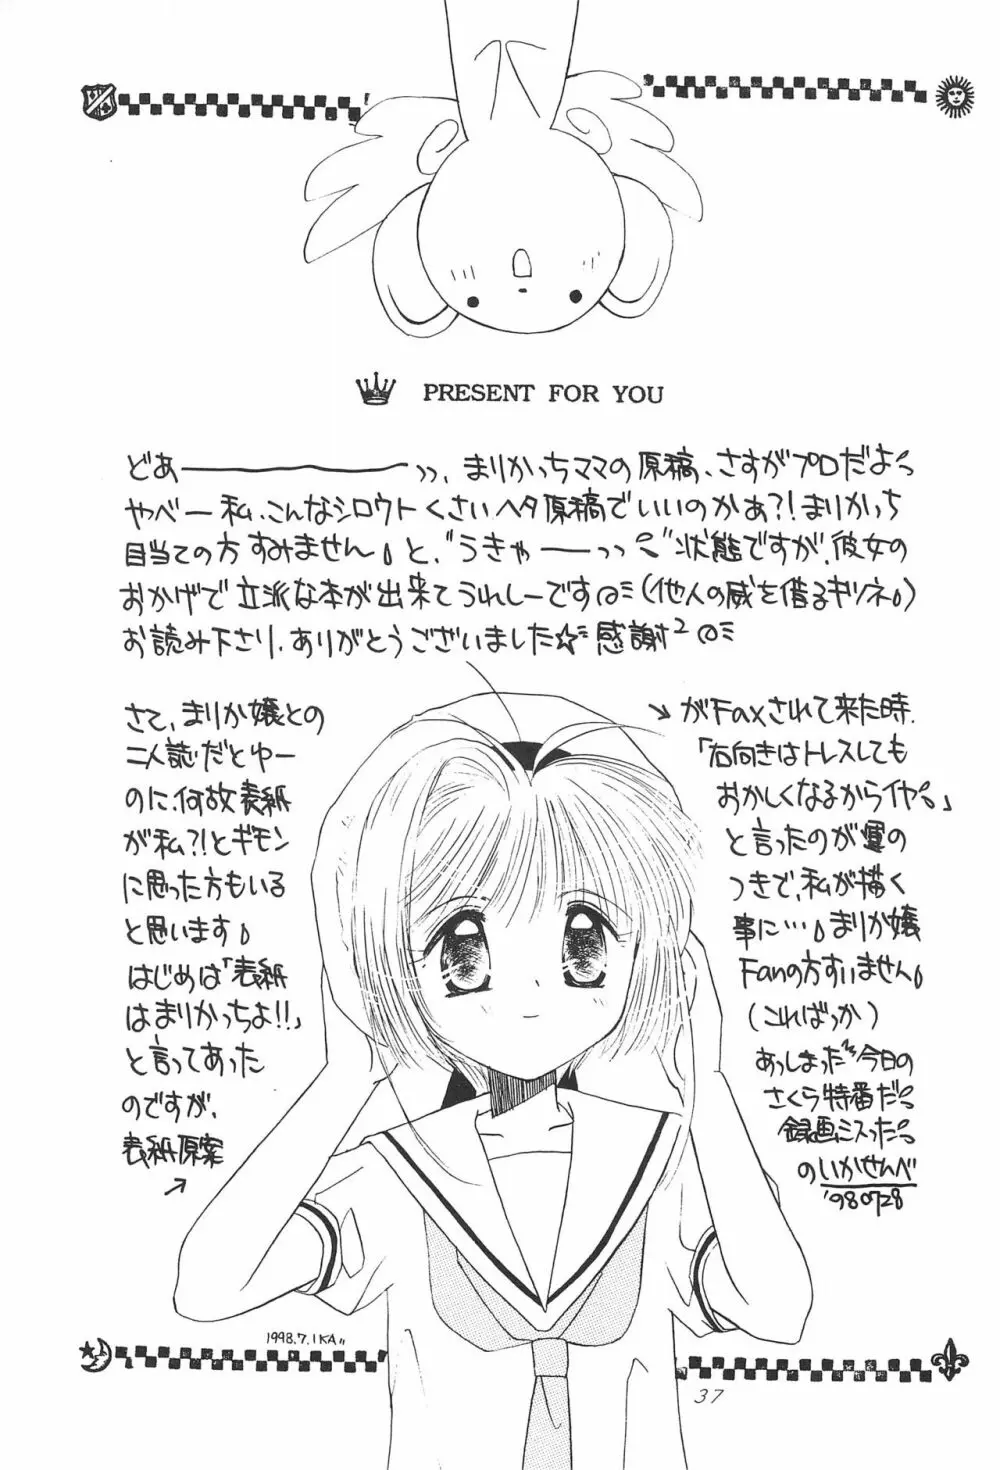 PRESENT FOR YOU
どあーーーーッッ、まりかっちママの原稿、さすがプロだよっ
やべー私、こんなシロウトくさいヘタ原稿でいいのかぁ?!まりかっち
目当ての方すみません。と、"うきゃーーッッ"状態ですが、彼女の
おかげで立派な本が出来てうれしーです(他人の威を借るキツネ。)
お読み下さり、ありがとうございました☆感謝²
さて、まりか嬢との
二人誌だとゆー
のに、何故表紙
が私?!とギモン
に思った方もいる
と思います。
はじめは「表紙
はまりかっちよ!!」
と言ってあった
のですが、
表紙原案
↗
↘がFaxされて来た時、
「右向きはトレスしても
おかしくなるからイヤ。」
と言ったのが運の
つきで、私が描く
事に…。まりか嬢
Fanの方すいません。
(こればっか)
あっしまった今日の
さくら特番だっ
録画ミスったっ
のいかせんべ
'980728
1998.7.IKA
37